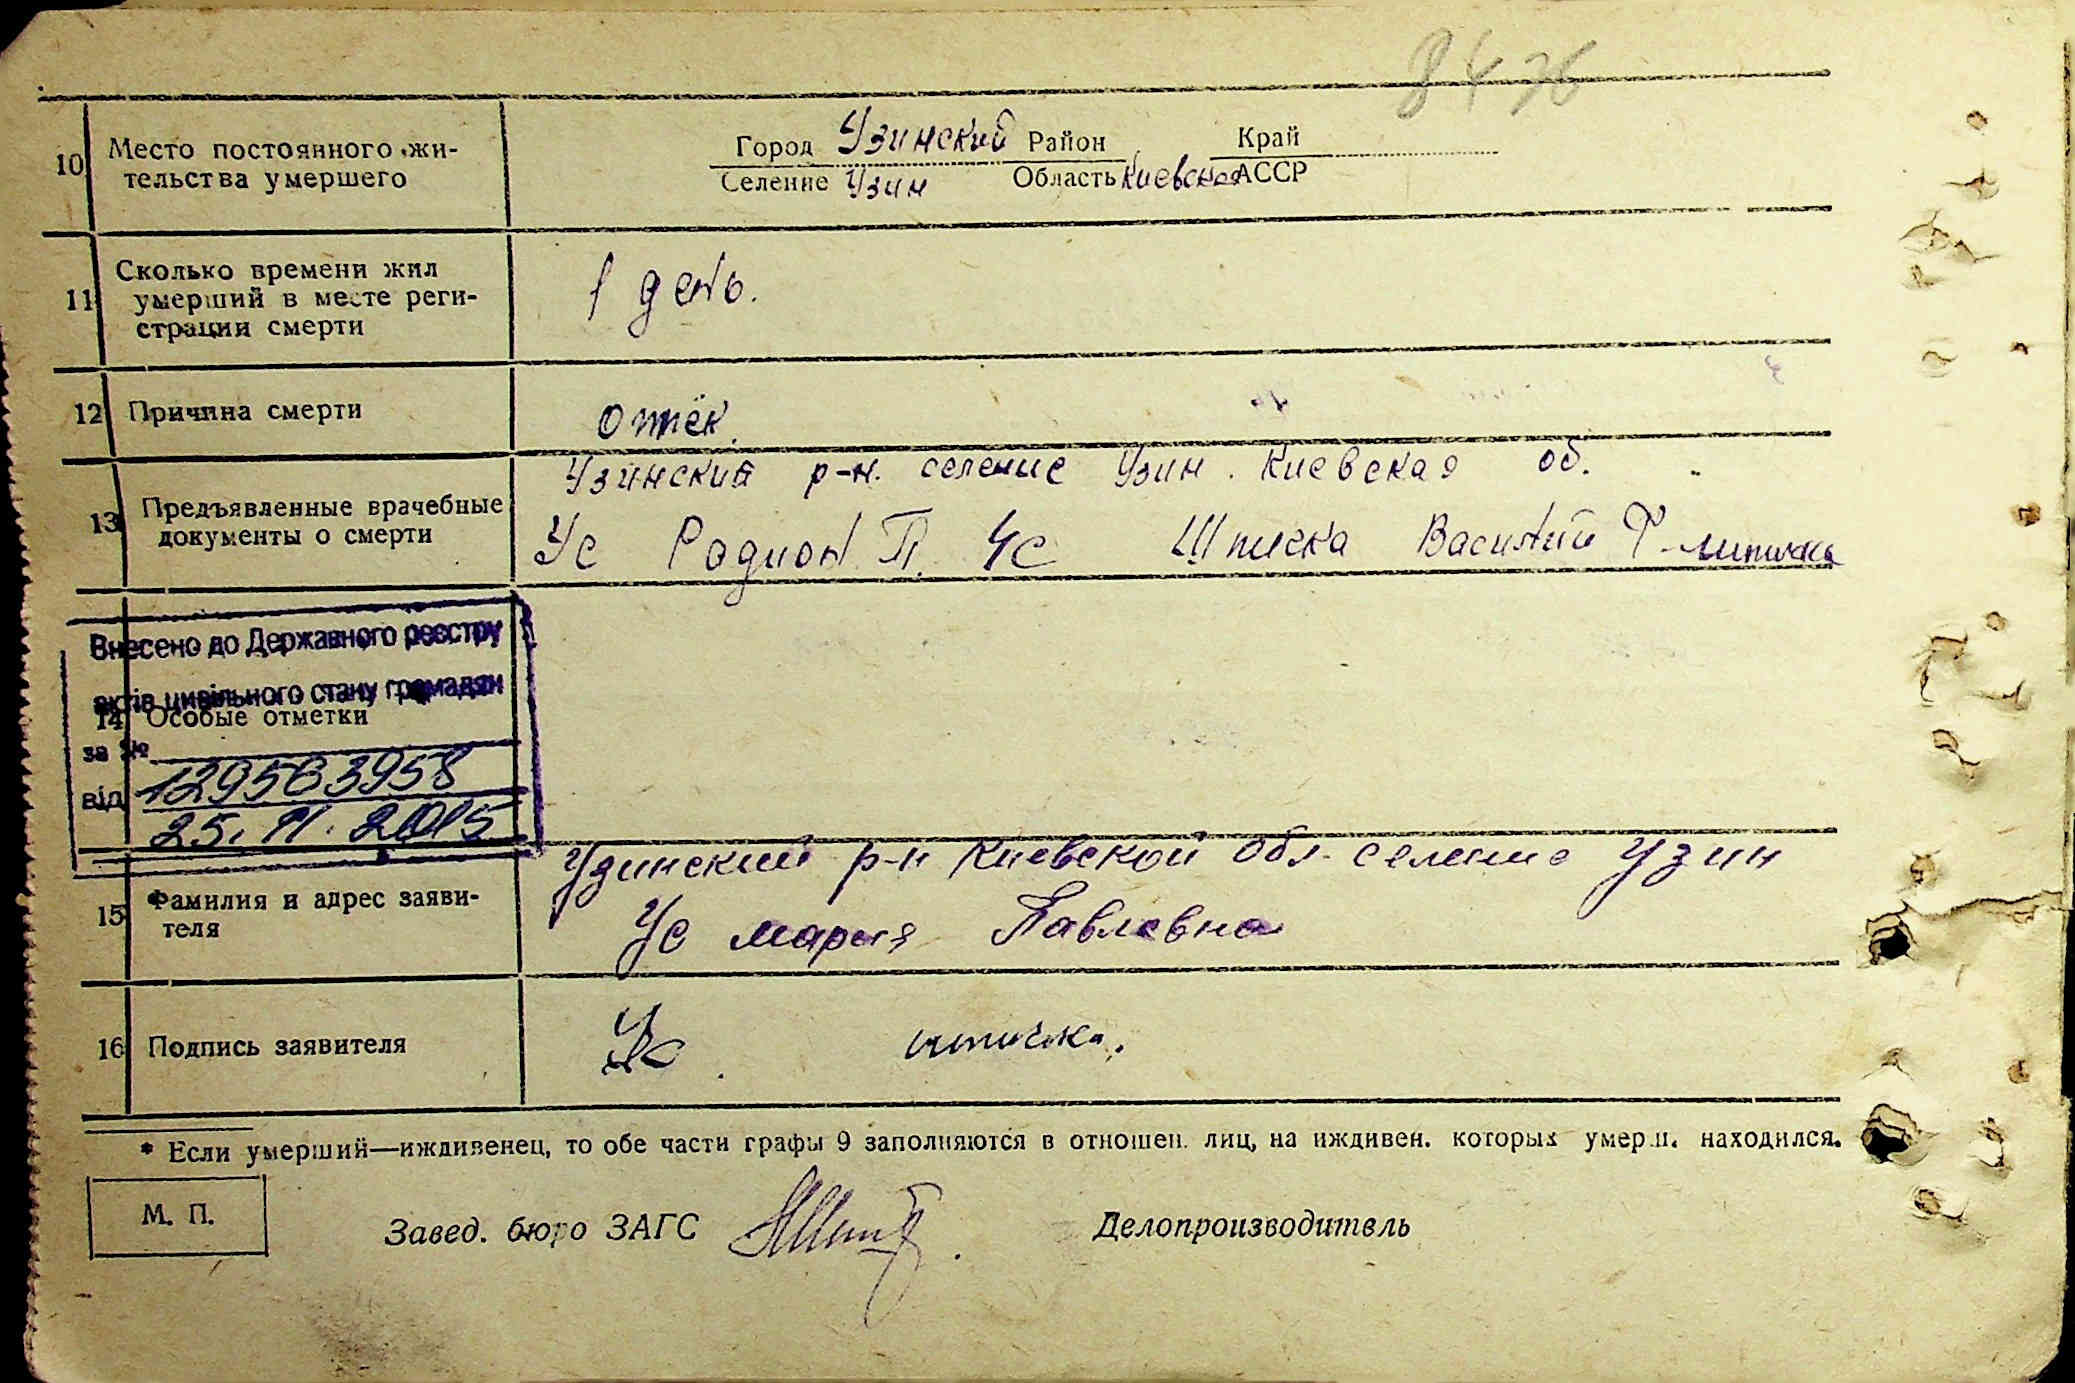 8436
10 Место постоянного жи-
тельства умершего
Город Узинский Район Край
Селение Узин Область Киевская АССР
11 Сколько времени жил
умерший в месте реги-
страции смерти
1 день.
12 Причина смерти
отёк.
13 Предъявленные врачебные
документы о смерти
Узинский р-н. селение Узин. Киевская об.
Ус Родион П. Ус Шпичка Василий Т-
Внесено до Державного реєстру
актів цивільного стану громадян
14 Особые отметки
за №
129563958
від
25.11.2015
15 Фамилия и адрес заяви-
теля
Узинский р-н Киевской обл. селение Узин
Ус Мария Павловна
16 Подпись заявителя
Ус
* Если умерший—иждивенец, то обе части графы 9 заполняются в отношен. лиц, на иждивен. которых умерш. находился.
М. П.
Завед. бюро ЗАГС
Делопроизводитель